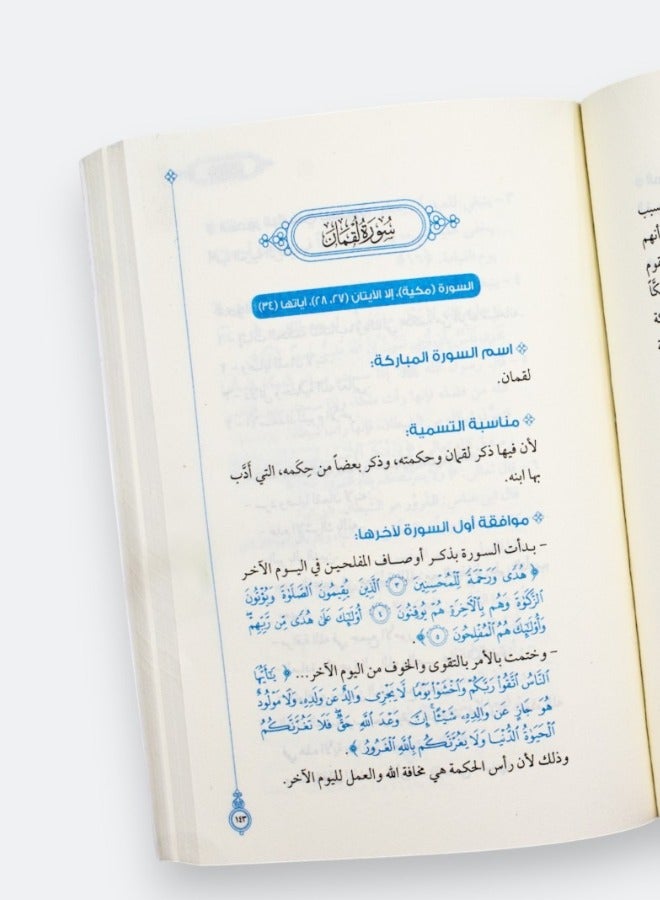 سُورَةُ لُقْمَان
السورة (مكية)، إلا الآيتان (٢٧، ٢٨)، آياتها (٣٤)
اسم السورة المباركة:
لقمان.
مناسبة التسمية:
لأن فيها ذكر لقمان وحكمته، وذكر بعضاً من حِكَمه، التي أدَّب
بها ابنه.
موافقة أول السورة لآخرها:
- بدأت السورة بذكر أوصاف المفلحين في اليوم الآخر
﴿ هُدًى وَرَحْمَةً لِّلْمُحْسِنِينَ ٣ الَّذِينَ يُقِيمُونَ الصَّلَوٰةَ وَيُؤْتُونَ
الزَّكَوٰةَ وَهُم بِالْآخِرَةِ هُمْ يُوقِنُونَ ٤ أُوْلَٰٓئِكَ عَلَىٰ هُدًى مِّن رَّبِّهِمْ
وَأُوْلَٰٓئِكَ هُمُ الْمُفْلِحُونَ ٥ ﴾.
- وختمت بالأمر بالتقوى والخوف من اليوم الآخر... ﴿ يَٰٓأَيُّهَا
النَّاسُ اتَّقُوا۟ رَبَّكُمْ وَاخْشَوْا۟ يَوْمًا لَّا يَجْزِى وَالِدٌ عَن وَلَدِهِۦ وَلَا مَوْلُودٌ
هُوَ جَازٍ عَن وَالِدِهِۦ شَيْـًٔا إِنَّ وَعْدَ اللَّهِ حَقٌّ فَلَا تَغُرَّنَّكُمُ
الْحَيَوٰةُ الدُّنْيَا وَلَا يَغُرَّنَّكُم بِاللَّهِ الْغَرُورُ ﴾.
وذلك لأن رأس الحكمة هي مخافة الله والعمل لليوم الآخر.
١٤٣